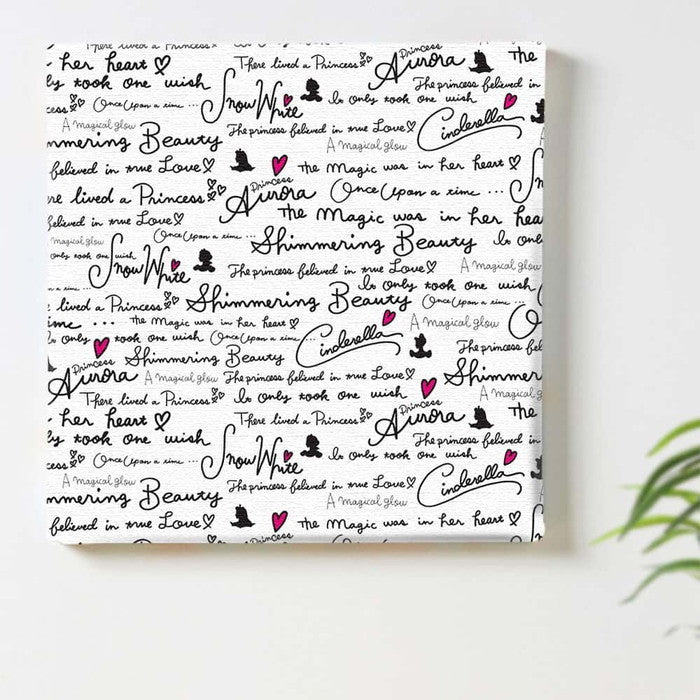 There lived a Princess Princess
her heart There lived a Princess Aurora the
ly took one wish The princess believed in
cess Once Upon a time ... Snow White Is only took one wish
A magical glow The princess believed in true Love Cinderella
mmering Beauty A magical glow
believed in true Love the Magic was in her heart
ere lived a Princess Princess Aurora Once Upon a time ...
believed in true Love the Magic was in her hea
magical glow Once Upon a time ... Shimmering Beauty Is onl
only took one wish Snow White The princess believed in true Love A magical glow
Is only took one wish
e lived a Princess Shimmering Beauty Once Upon a time ...
ime ... the Magic was in her heart A magical glow
only took one wish Once Upon a time ... Cinderella
Princess Shimmering Beauty The princess beli
Aurora A magical glow The princess believed in true Love Shimmer
There lived a Princess Is only took one wish A magical gl
her heart There lived a Princess Princess Aurora the
ly took one wish The princess believed in
cess Once Upon a time ... Snow White Is only took one wish
A magical glow The princess believed in true Love Cinderella
mmering Beauty A magical glow
believed in true Love the Magic was in her heart